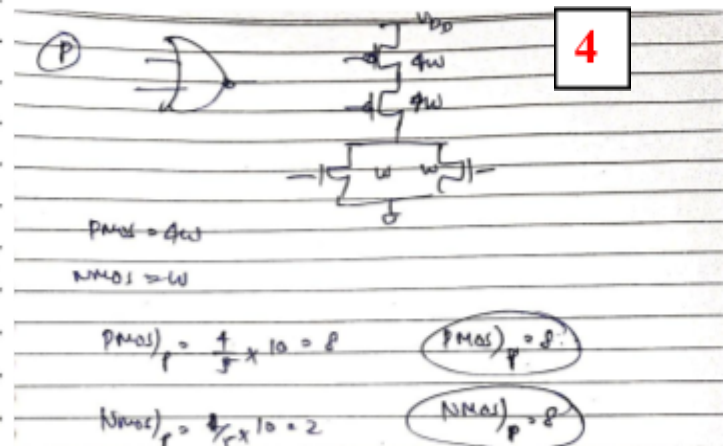 V_DD
4
P
4W
4W
W W
PMOS = 4W
NMOS = W
PMOS)_P = 4/5 × 10 = 8
PMOS)_P = 8
NMOS)_P = 1/5 × 10 = 2
NMOS)_P = 8